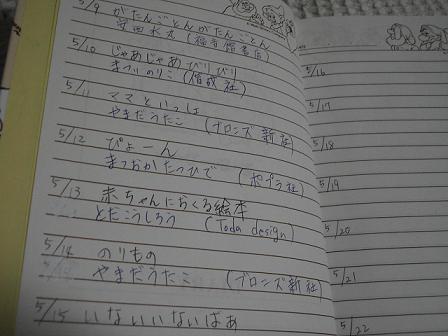 5/9 がたんごとんがたんごとん
安西水丸 (福音館書店)
5/10 じゃあじゃあびりびり
まついのりこ (偕成社)
5/11 ママといっしょ
やまだうたこ (ブロンズ新社)
5/12 ぴょーん
まつおかたつひで (ポプラ社)
5/13 赤ちゃんにおくる絵本
とだこうしろう (Toda design)
5/14 のりもの
やまだうたこ (ブロンズ新社)
5/15 いないいないばあ
5/16
5/17
5/18
5/19
5/20
5/21
5/22